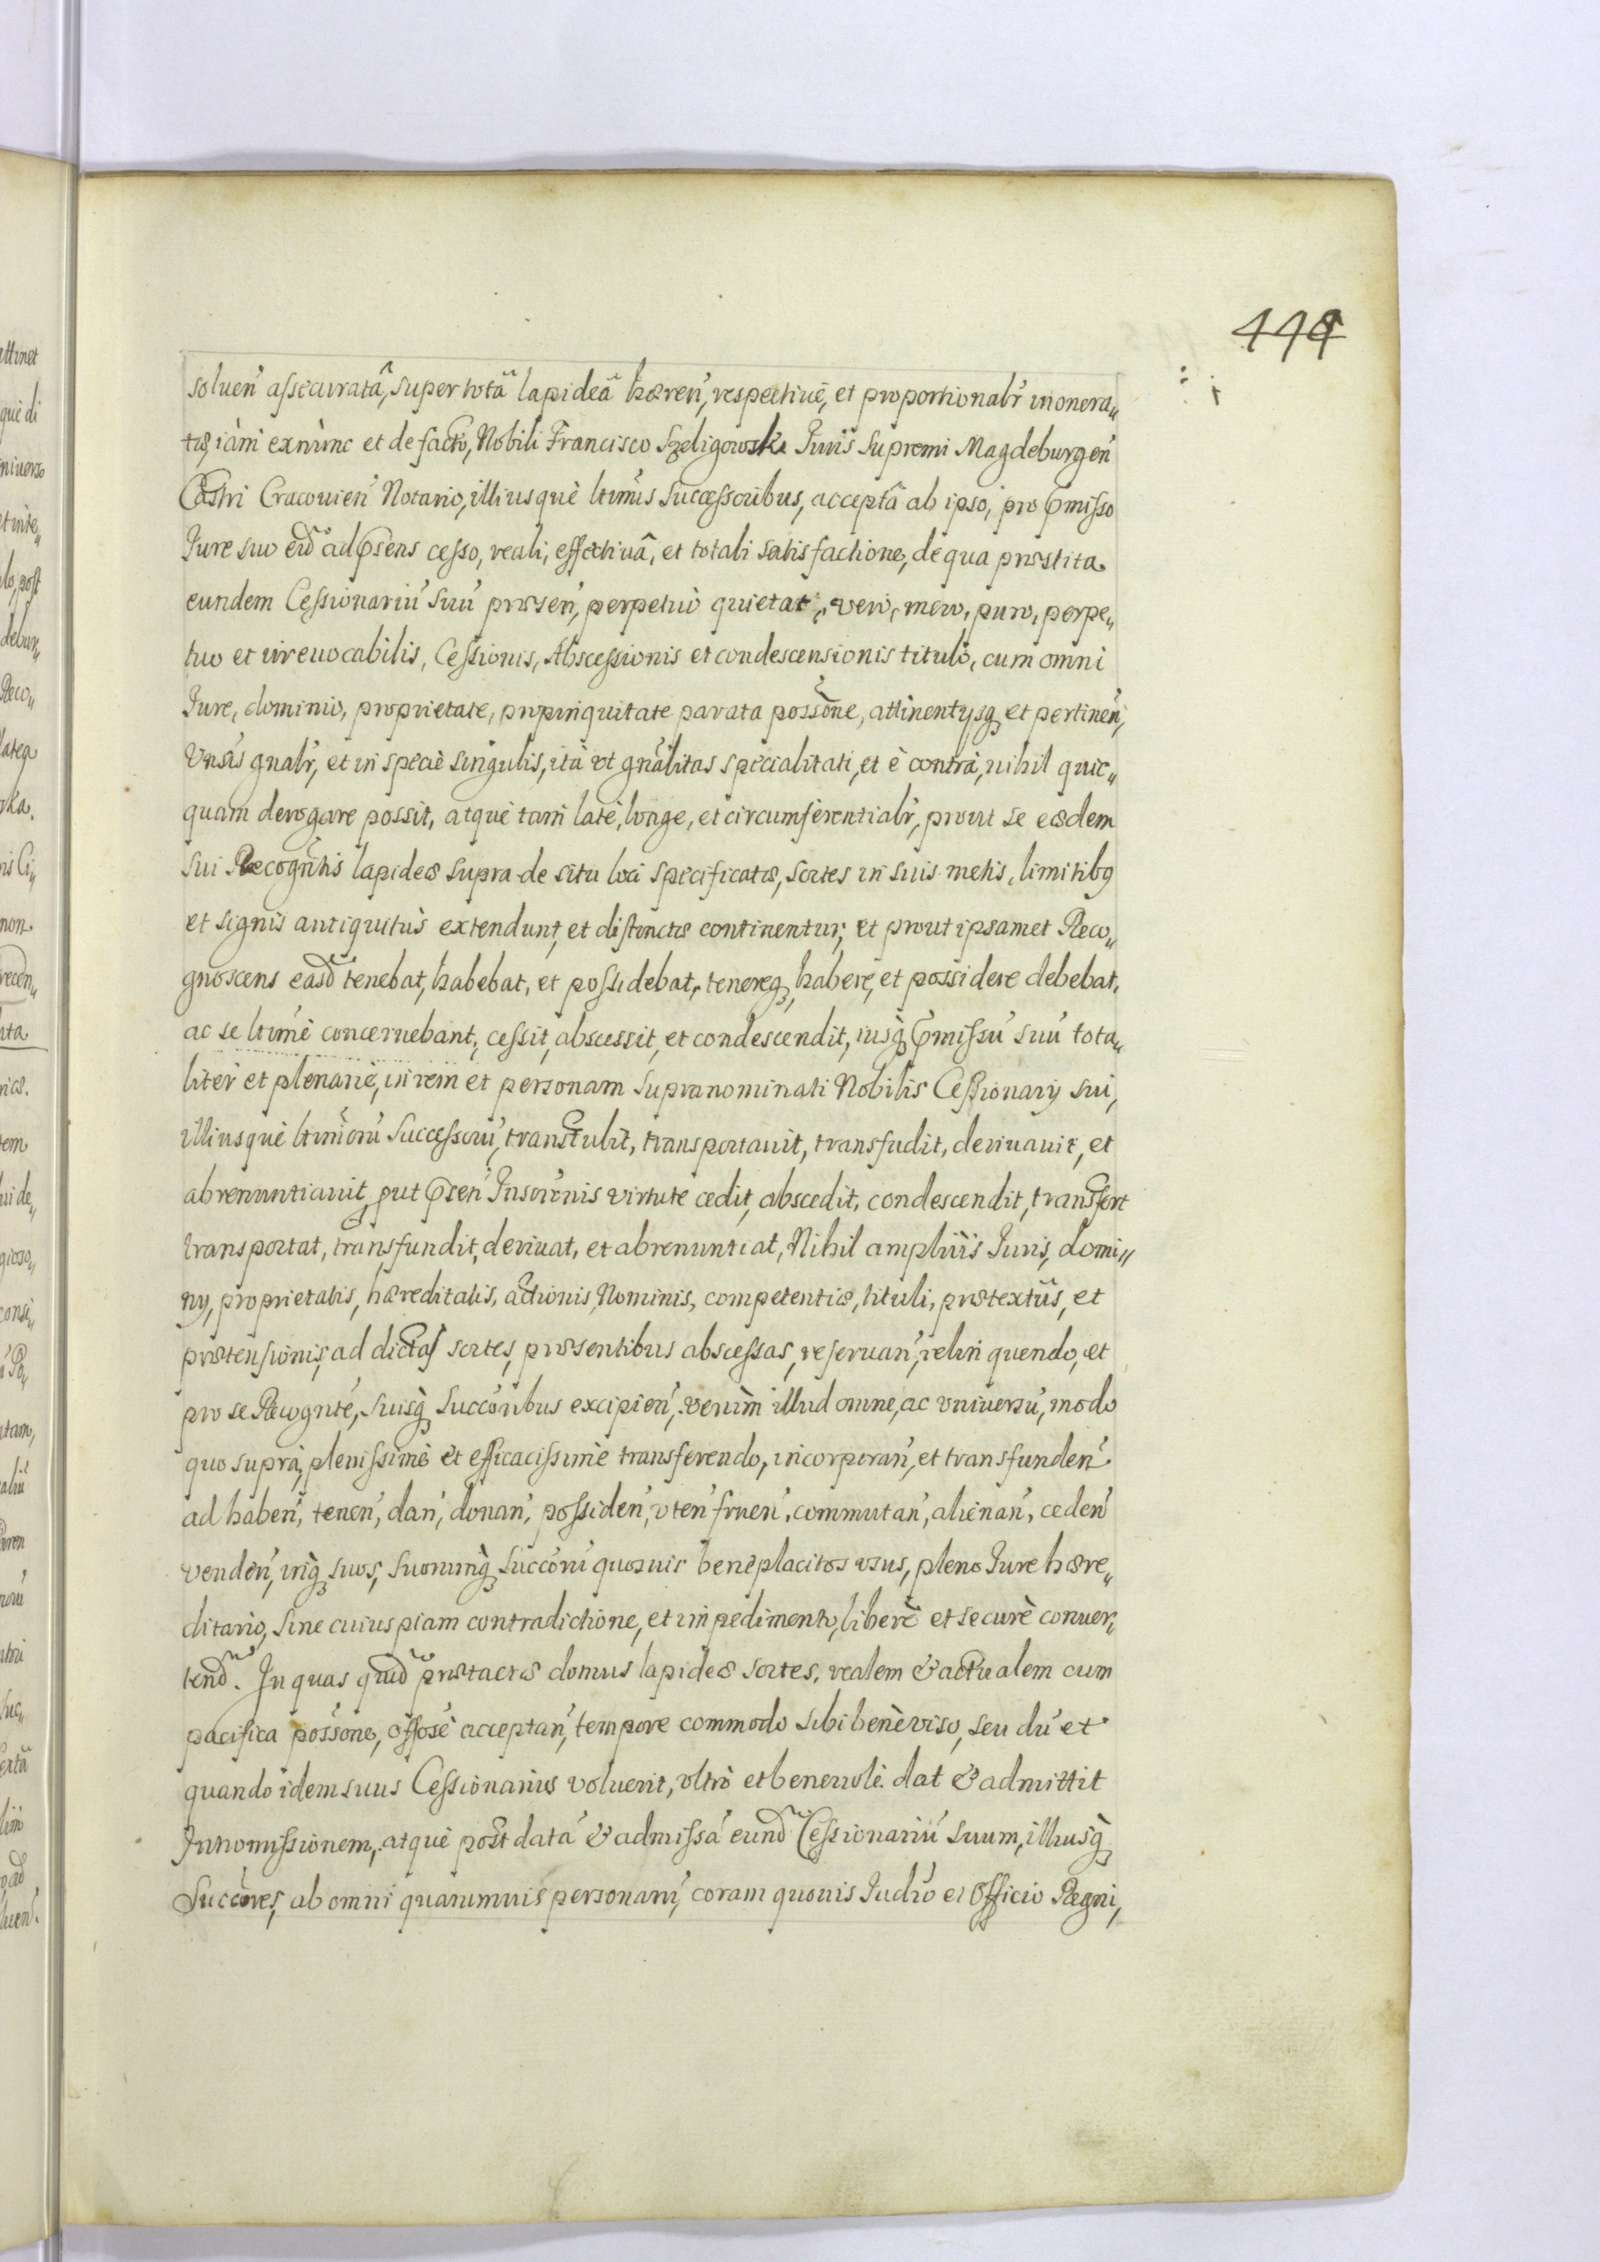 444
soluen̄ assecuratâ, super totā lapideā hæren̄, respectiuè, et proportionalr̄ inonera„
tæ, iàm exnùnc et de facto, Nobili Francisco Szeligowski Juris Supremi Magdeburgen̄
Castri Cracouien̄ Notario, illiusquè ltimīs Successoribus, acceptâ ab ipso, pro pmisso
Jure suo eid̄ ad psens cesso, reali, effectiuâ, et totali satisfactione, de qua præstita
eundem Cessionariū suū præsen̄, perpetuò quietat, vero, mero, puro, perpe„
tuo et irreuocabilis, Cessionis, Abscessionis et condescensionis titulo, cum omni
Jure, dominio, proprietate, propinquitate parata possōne, attinentysq; et pertinen̄,
Vnsis gnalr̄, et in speciè singulis, ità vt gnālitas specialitati, et è contrà, nihil quic„
quam derogare possit, atquè tam latè, longe, et circumferentialr̄, prout se eædem
sui Recogntis lapideæ supra de situ loci specificatæ, sortes in suis metis, limitibq
et signis antiquitùs extendunt, et distinctæ continentur; et prout ipsamet Reco„
gnoscens easd̄ tenebat, habebat, et possidebat, tenereq; habere, et possidere debebat,
ac se ltimè concernebant, cessit, abscessit, et condescendit, iusq; pmissū suū tota„
liter et plenariè, in rem et personam supranominati Nobilis Cessionarij sui,
illiusquè ltimorū Successorū, transtulit, transportauit, transfudit, deriuauit, et
abrenuntiauit, put psen̄ Inscrōnis virtute cedit, abscedit, condescendit, transfert
transportat, transfundit, deriuat, et abrenuntiat, Nihil ampliùs Juris, domi„
nij, proprietatis, hæreditatis, actionis, Nominis, competentiæ, tituli, prætextûs, et
prætensionis, ad dictas sortes, præsentibus abscessas, reseruan̄, relinquendo, et
pro se Recognte, suisq; succōribus excipien̄, verùm illud omne, ac vniuersū, modo
quo suprà, plenissimè et efficacissimè transferendo, incorporan̄, et transfunden̄
ad haben̄, tenen̄, dan̄, donan̄, possiden̄, vten̄ fruen̄, commutan̄, alienan̄, ceden̄
venden̄, inq; suos, suorumq; succōrū quosuis beneplacitos vsus, pleno Jure hære„
ditario, sine cuiuspiam contradictione, et impedimento, liberè et securè conuer„
tend̄. In quas quid̄ prætactæ domus lapideæ sortes, realem & actualem cum
pacifica possōne, offosè acceptan̄, tempore commodo sibi benè viso, seu dū et
quando idem suus Cessionarius voluerit, vltrò et beneuolè dat & admittit
Intromissionem, atquè post datā & admissā eund̄ Cessionariū suum, illiusq;
Succōres, ab omni quarumuis personarū, coram quouis Judīo et Officio Regni,